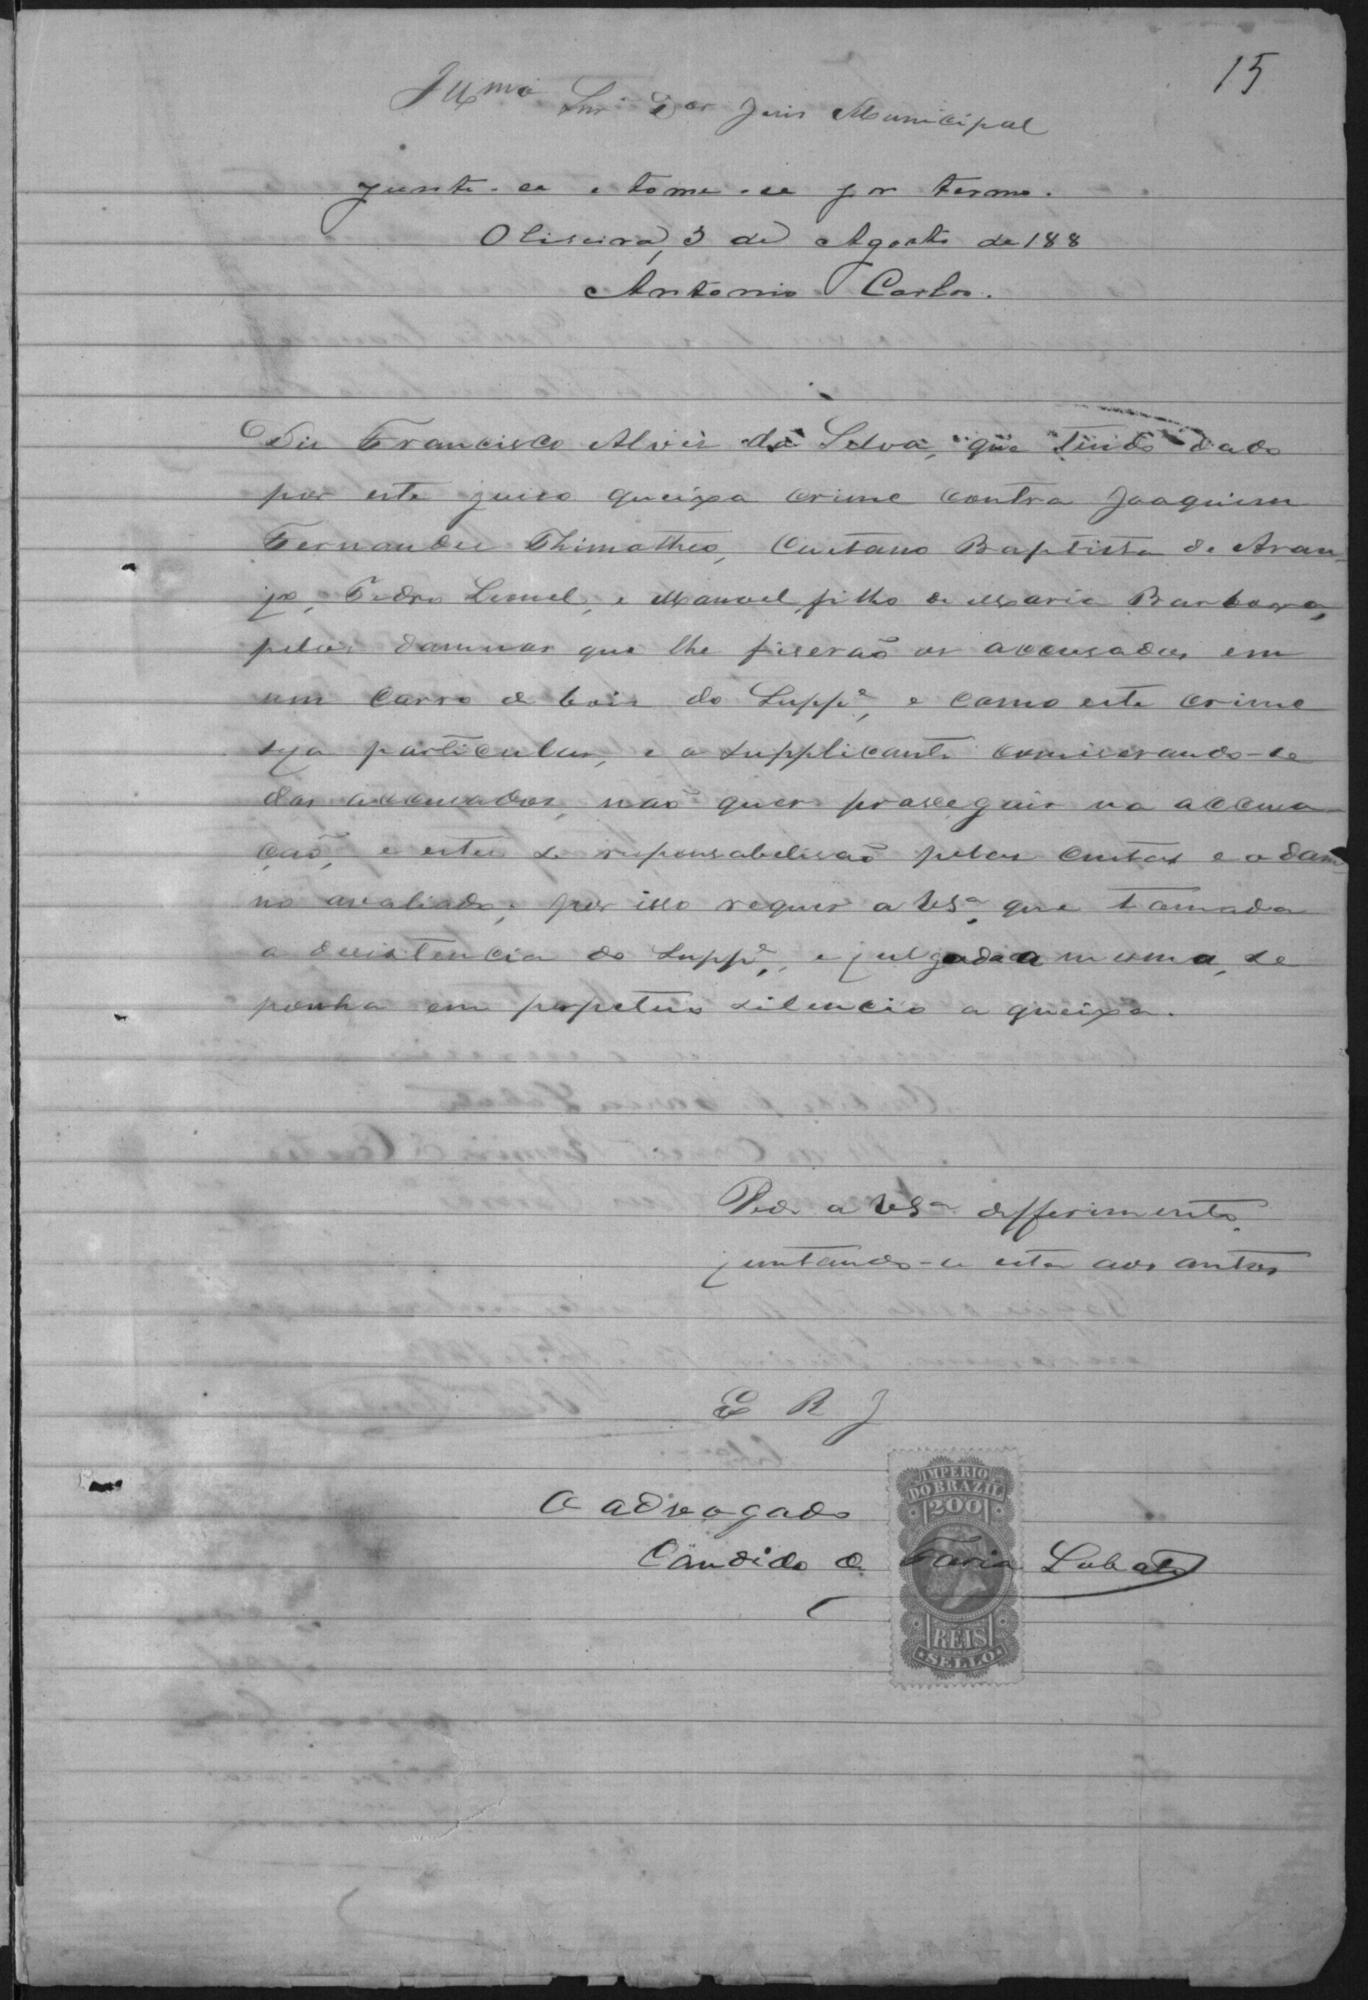 15
Illmo Snr Dor Juis Municipal
Junte-se e tome-se por termo.
Oliveira, 3 de Agosto de 188
Antonio Carlos.
Diz Francisco Alves da Silva, que tendo dado
por este juiso queixa crime contra Joaquim
Fernandes Thimotheo, Caetano Baptista de Arau
jo, Pedro Lemel, e Manoel, filho de Maria Barbosa,
pelos damnos que lhe fiserão os accusados em
um carro de bois do Suppe, e como este crime
seja particular, e o supplicante comiserando-se
dos accusados, não quer proseguir na accusa
ção, e estes se responsabelisão pelas custas e o dam
no avaliado; por isso requer a VSa que tomada
a desistencia do Suppe, e julgada a mesma, se
ponha em perpetuo silencio a queixa.
Pede a VSa defferimento
juntando-se esta aos autos
E R J
O advogado
Candido de Faria Lobato
IMPERIO
DO BRAZIL
200
REIS
SELLO